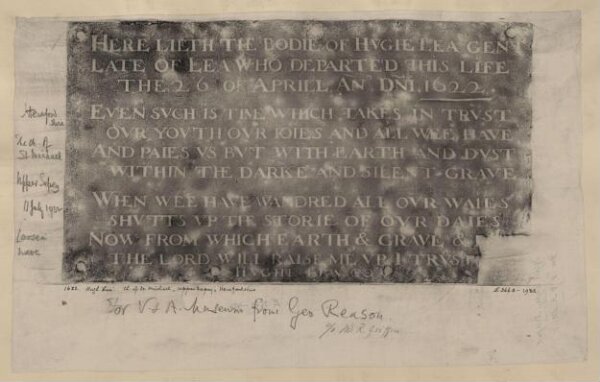 HERE LIETH THE BODIE OF HVGH LEA GEN
LATE OF LEA WHO DEPARTED THIS LIFE
THE 26 OF APRILL AN DÑI 1622.
EVEN SVCH IS TIME WHICH TAKES IN TRVST
OVR YOVTH OVR IOIES AND ALL WEE HAVE
AND PAIES VS BVT WITH EARTH AND DVST
WITHIN THE DARKE AND SILENT GRAVE
WHEN WEE HAVE WANDRED ALL OVR WAIES
SHVTTS VP THE STORIE OF OVR DAIES
NOW FROM WHICH EARTH & GRAVE &
THE LORD WILL RAISE ME VP I TRVST
Hereford
shire
Ch of
St Michael
Upper Sapey
July 1922
Loose in
nave
1622. Hugh Lea. Ch. of St. Michael, Upper Sapey, Herefordshire
For V & A. Museum from Geo Reason